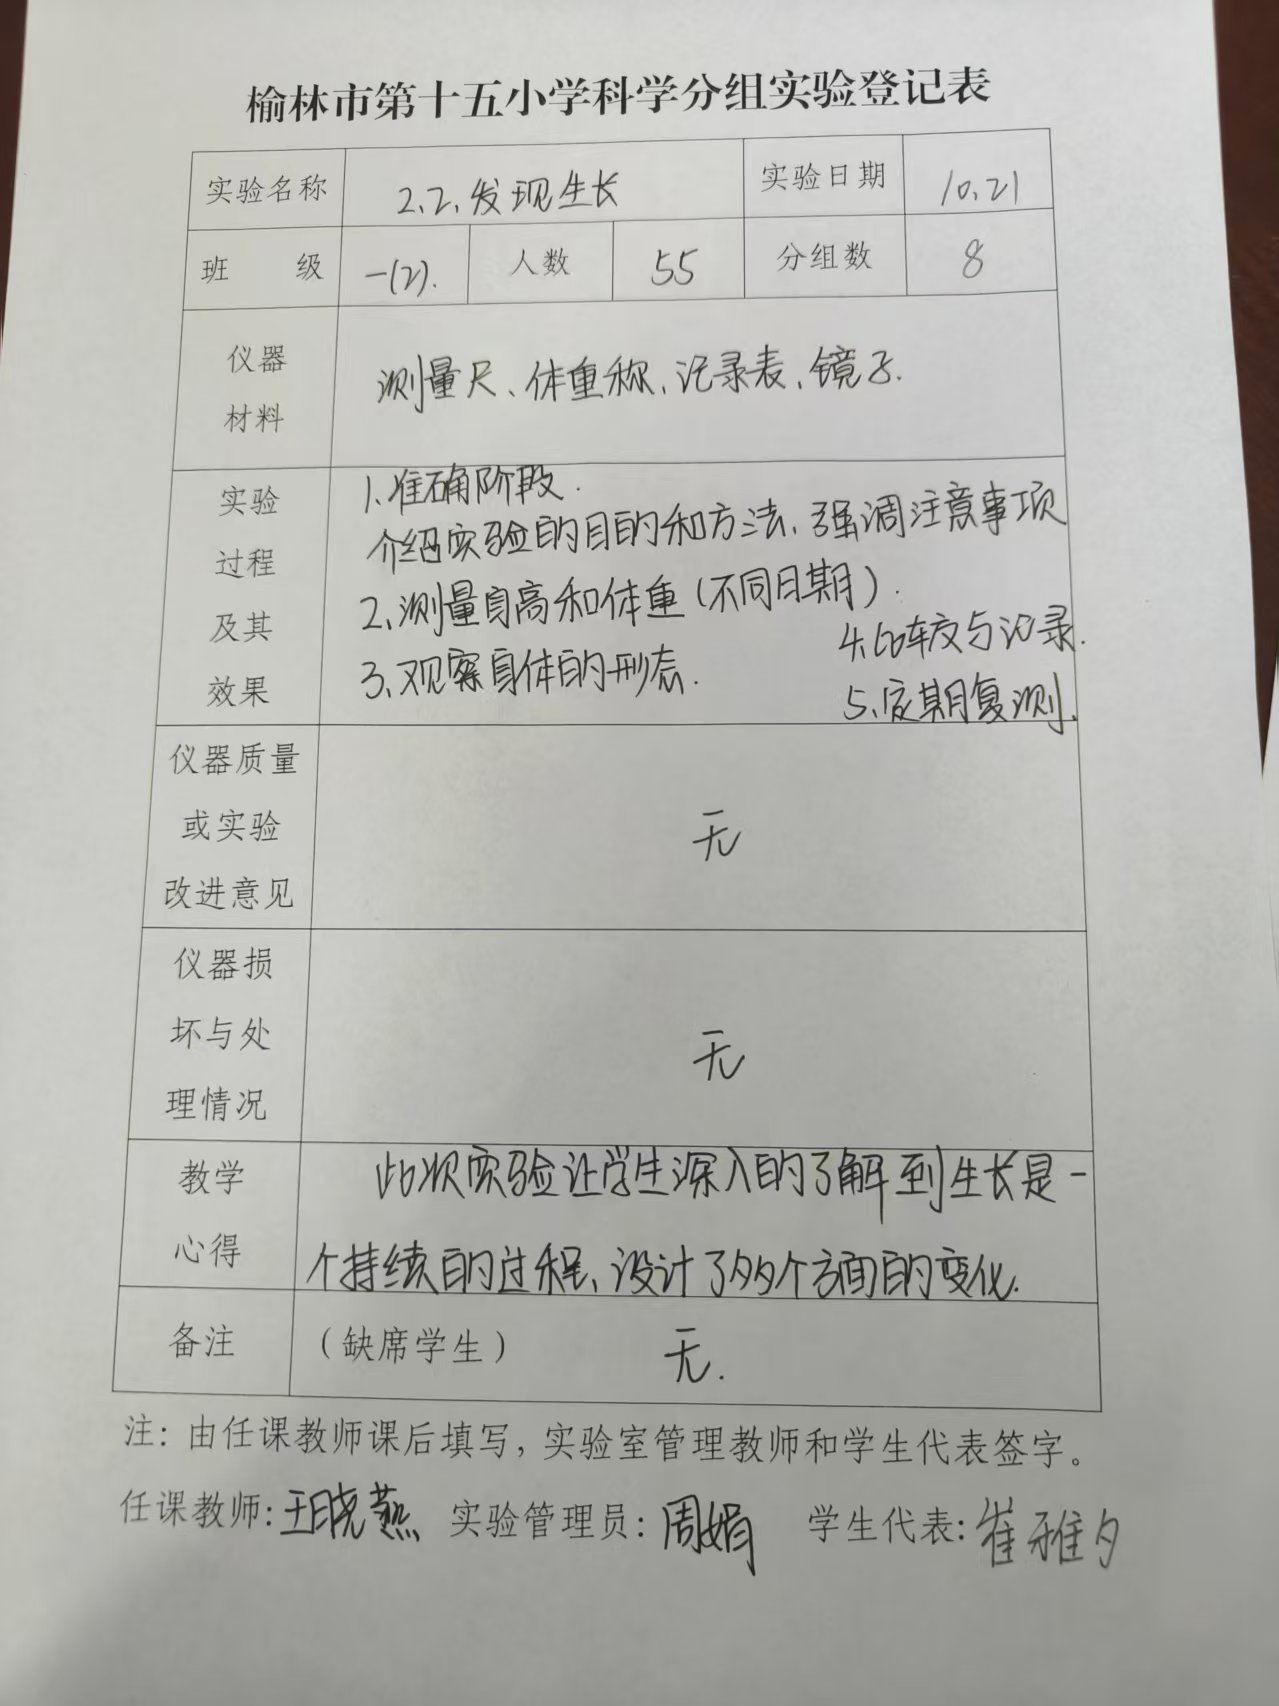 榆林市第十五小学科学分组实验登记表
实验名称 2.2.发现生长 实验日期 10.21
班 级 一(2). 人数 55 分组数 8
仪器
材料
测量尺、体重称、记录表、镜子.
实验
过程
及其
效果
1.准确阶段.
介绍实验的目的和方法、强调注意事项
2、测量身高和体重(不同日期).
3、观察身体的形态.
4.比较与记录.
5、定期复测.
仪器质量
或实验
改进意见
无
仪器损
坏与处
理情况
无
教学
心得
此次实验让学生深入的了解到生长是一
个持续的过程、设计了多个方面的变化.
备注 (缺席学生) 无.
注: 由任课教师课后填写, 实验室管理教师和学生代表签字。
任课教师: 王晓燕 实验管理员: 周娟 学生代表: 崔雅夕